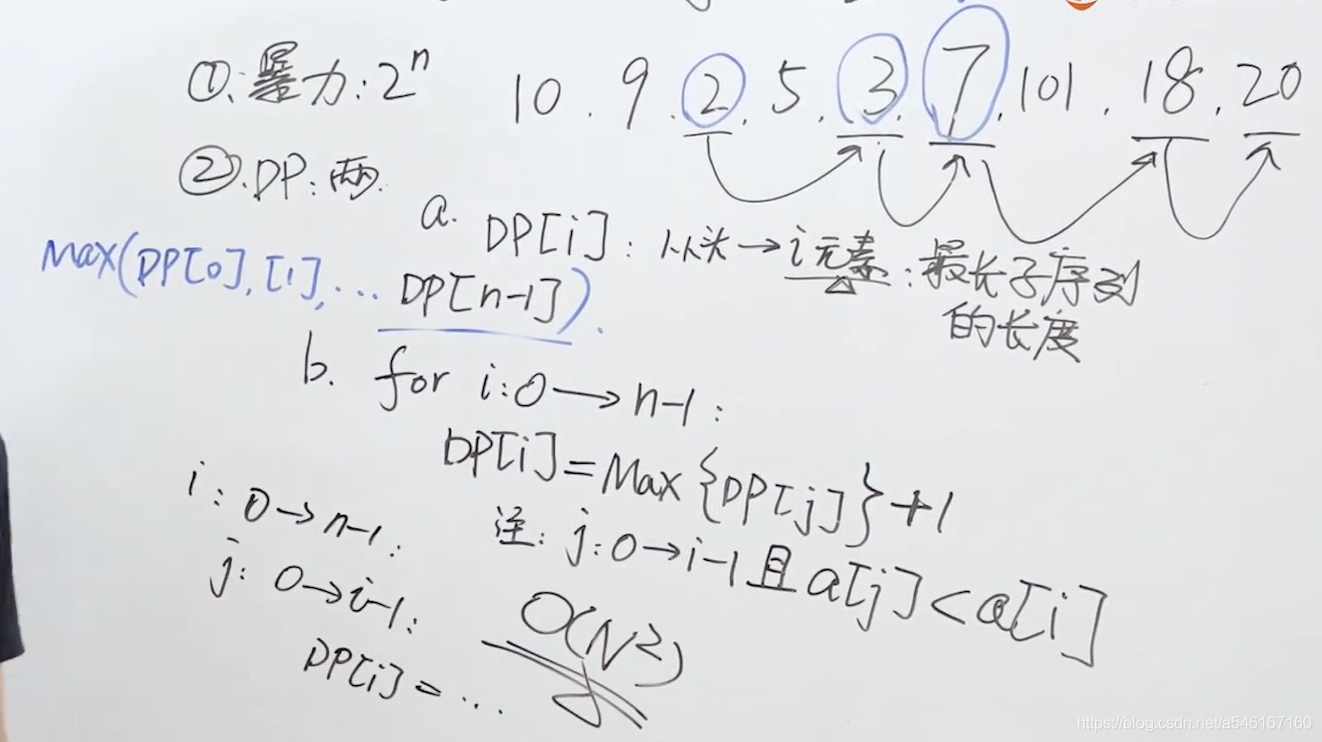 ①.暴力:2ⁿ
10.9.2.5.3.7.101.18.20
②.DP:两.
a. DP[i]:从头→i元素:最长子序列
的长度
Max(DP[0],[1],... DP[n-1]).
b. for i:0→n-1:
DP[i]=Max{DP[j]}+1
注: j:0→i-1且a[j]<a[i]
i:0→n-1:
j:0→i-1:
DP[i]=...
O(N²)
https://blog.csdn.net/a546167160